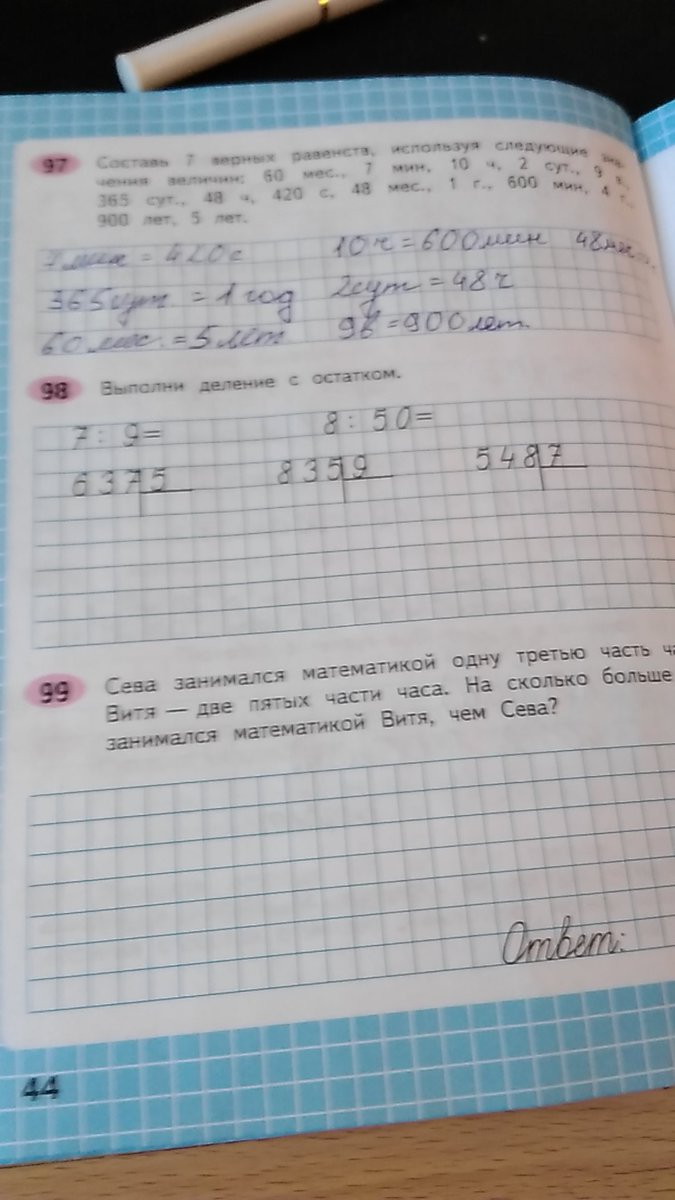 97 Составь 7 верных равенств, используя следующие зна-
чения величин: 60 мес., 7 мин, 10 ч, 2 сут., 9 в.,
365 сут., 48 ч, 420 с, 48 мес., 1 г., 600 мин, 4 г.,
900 лет, 5 лет.
7 мин = 420 с 10 ч = 600 мин 48
365 сут = 1 год 2 сут = 48 ч
60 мес. = 5 лет 9 в = 900 лет.
98 Выполни деление с остатком.
7 : 9 = 8 : 50 =
637 5 835 9 548 7
99 Сева занимался математикой одну третью часть
Витя — две пятых части часа. На сколько больше
занимался математикой Витя, чем Сева?
Ответ:
44